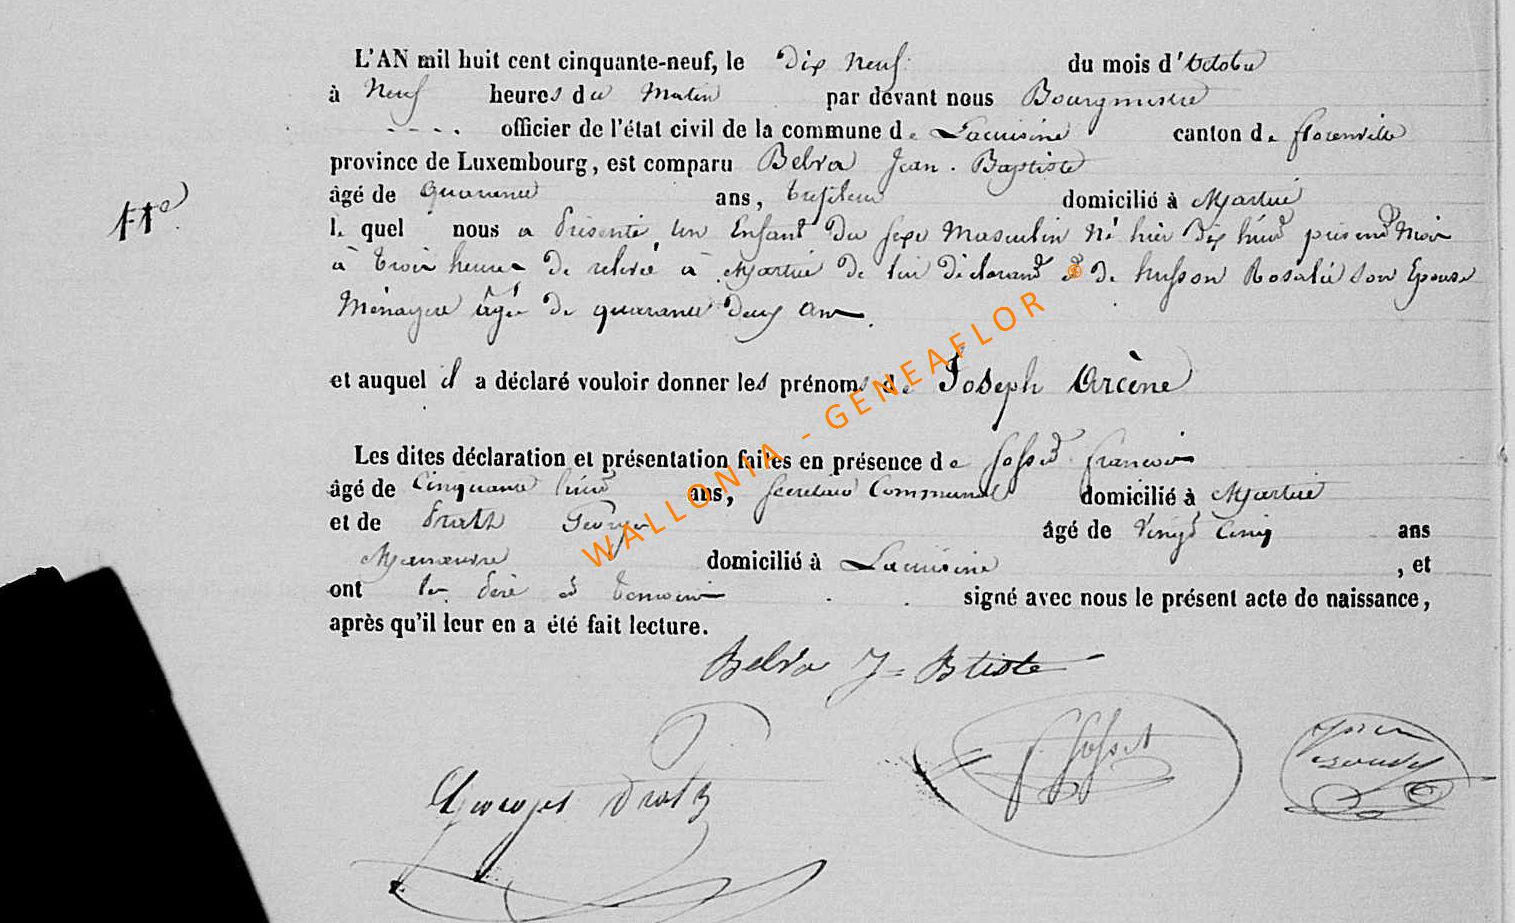 L'AN mil huit cent cinquante-neuf, le Dix Neuf du mois d'Octobre
à Neuf heures du Matin par devant nous Bourgmestre
officier de l'état civil de la commune de Lacuisine canton de florenville
province de Luxembourg, est comparu Belva Jean Baptiste
11e
âgé de quarante ans, domicilié à Martué
le quel nous a présenté un Enfant du sexe Masculin Né hier Dix huit présent Mois
à trois heures De relevée à Martué De lui déclarant et De husson Rosalie Son Epouse
Ménagère âgée De quarante Deux Ans.
et auquel il a déclaré vouloir donner les prénoms de Joseph Arcène
Les dites déclaration et présentation faites en présence de Gosset françois
âgé de Cinquante huit ans, Secrétaire Communal domicilié à Martué
et de Georges âgé de Vingt Cinq ans
Manœuvre domicilié à Lacuisine , et
ont les père et témoins signé avec nous le présent acte de naissance,
après qu'il leur en a été fait lecture.
Belva J= Btiste
Georges
Gosset
WALLONIA - GENEAFLOR